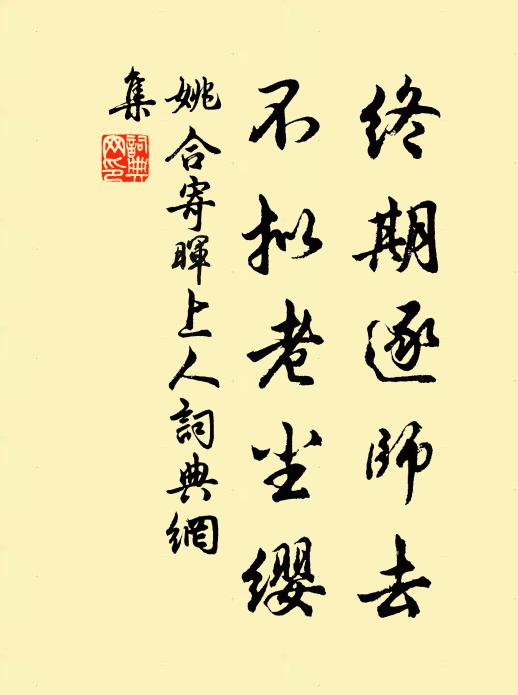 终期逐师去
不拟老尘缨
姚合寄暉上人詞典網
集
詞典网印